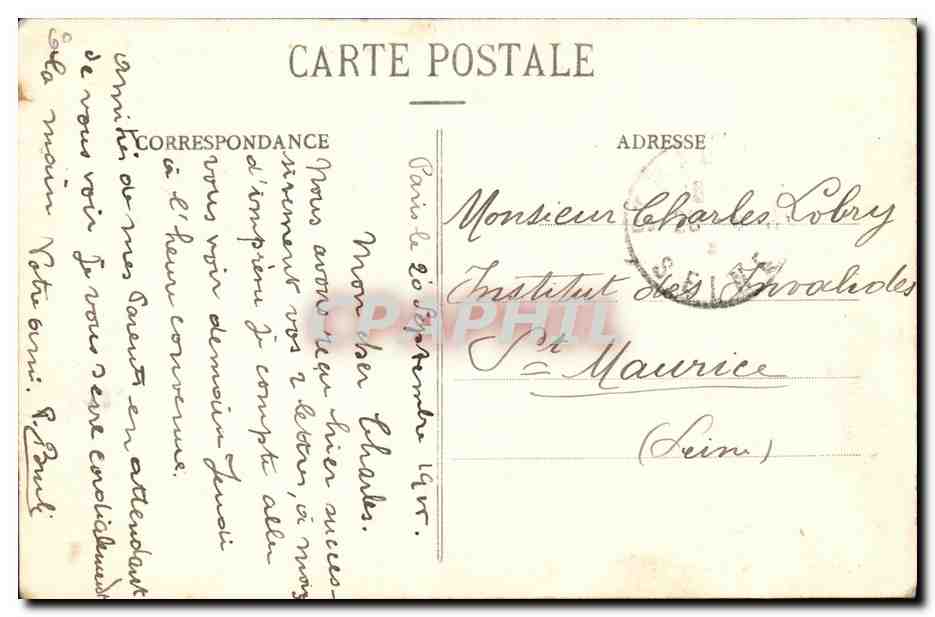 CARTE POSTALE
CORRESPONDANCE
ADRESSE
Paris le 20 Septembre 1915.
Mon cher Charles.
Nous avons reçu hier succes-
sivement vos 2 lettres, à moins
d'imprévu je compte aller
vous voir demain Jeudi
à l'heure convenue.
Amitiés de mes Parents en attendant
de vous voir je vous serre cordialement
la main Votre ami. P.
Monsieur Charles Lobry
Institut des Invalides
St Maurice
(Seine)
SEINE
CPAPHIL